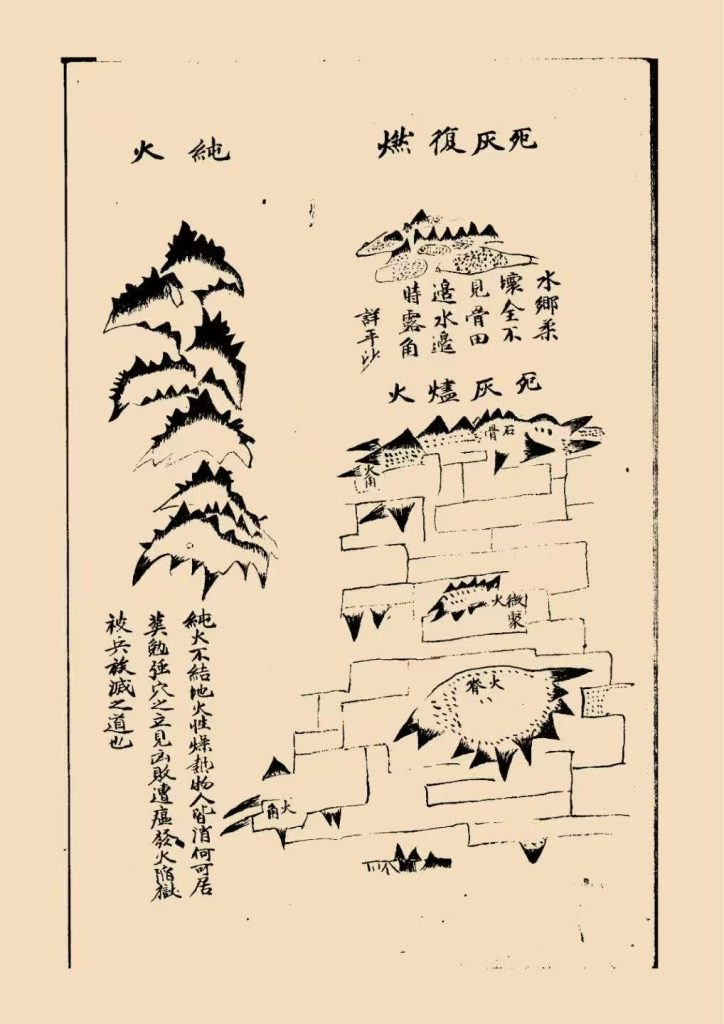 死灰復燃
水鄉柔
壞全不
見骨田
邉水邉
時露角
詳平沙
死灰燼火
石骨
火角
微聚火
火脊
火角
純火
純火不結地火性燥熱物人皆消何可居
葬勉强穴之立見凶敗遭瘟發火陷獄
被兵族滅之道也